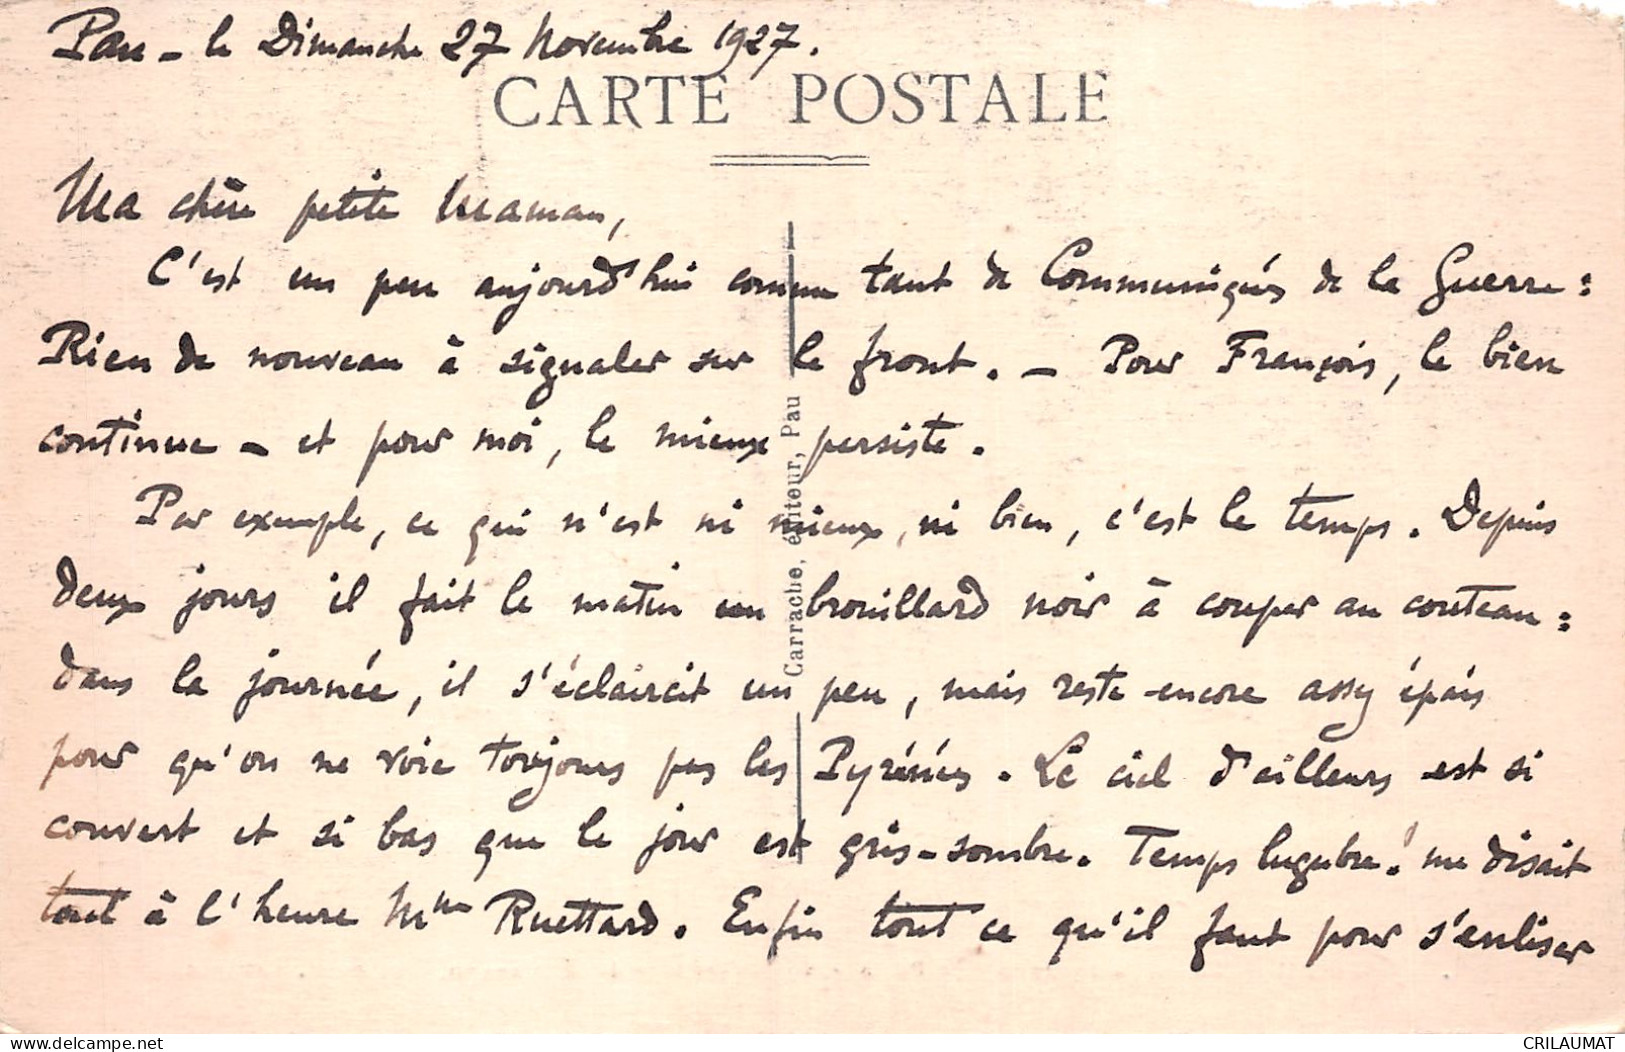 Pau - le Dimanche 27 Novembre 1927.
CARTE POSTALE
Ma chère petite Maman,
C'est un peu aujourd'hui comme tant de Communiqués de la Guerre :
Rien de nouveau à signaler sur le front. - Pour François, le bien
continue - et pour moi, le mieux persiste.
Par exemple, ce qui n'est ni mieux, ni bien, c'est le temps. Depuis
deux jours il fait le matin un brouillard noir à couper au couteau :
dans la journée, il s'éclaircit un peu, mais reste encore assez épais
pour qu'on ne voie toujours pas les Pyrénées. Le ciel d'ailleurs est si
couvert et si bas que le jour est gris-sombre. Temps lugubre ! me disait
tout à l'heure Mme Ruettard. Enfin tout ce qu'il faut pour s'enliser
Carrache, éditeur, Pau
www.delcampe.net
CRILAUMAT